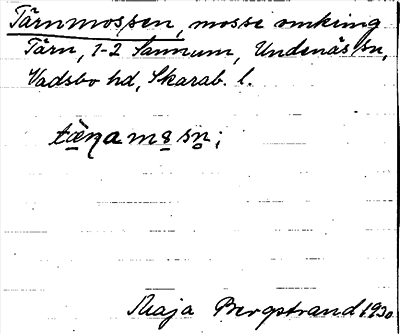 Tärnmossen, mosse omkring
Tärn, 1-2 Sannum, Undenäs sn,
Vadsbo hd, Skarab. l.
tæ̀ṇam8sn;
Maja Bergstrand 1930